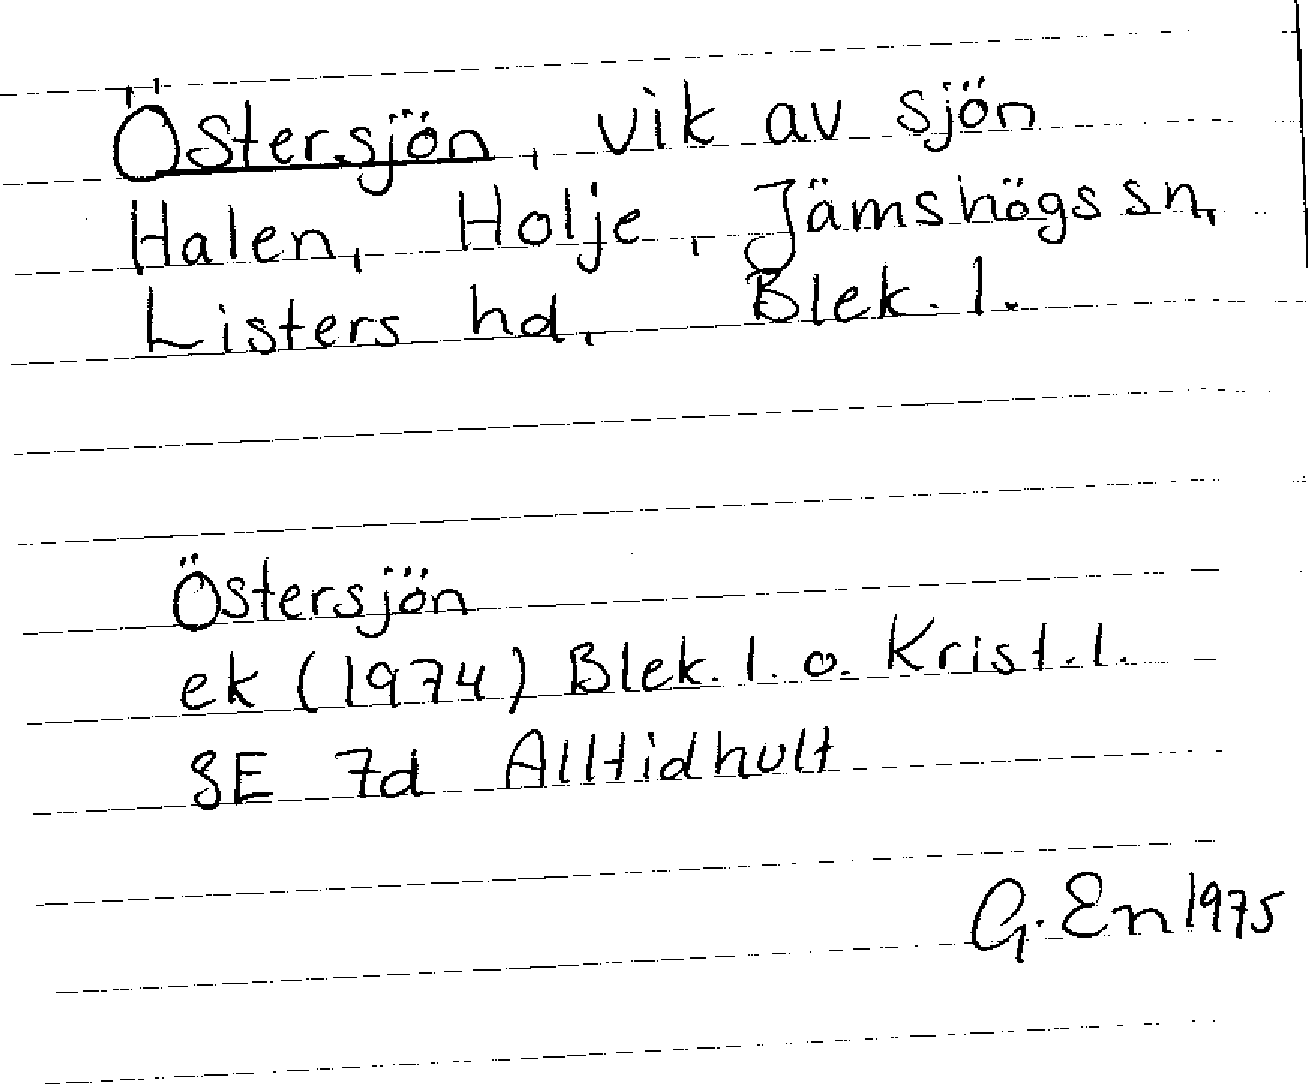 Östersjön, vik av sjön
Halen, Holje, Jämshögs sn,
Listers hd, Blek. l.
Östersjön
ek (1974) Blek. l. o. Krist. l.
SE 7d Alltidhult
G. En 1975